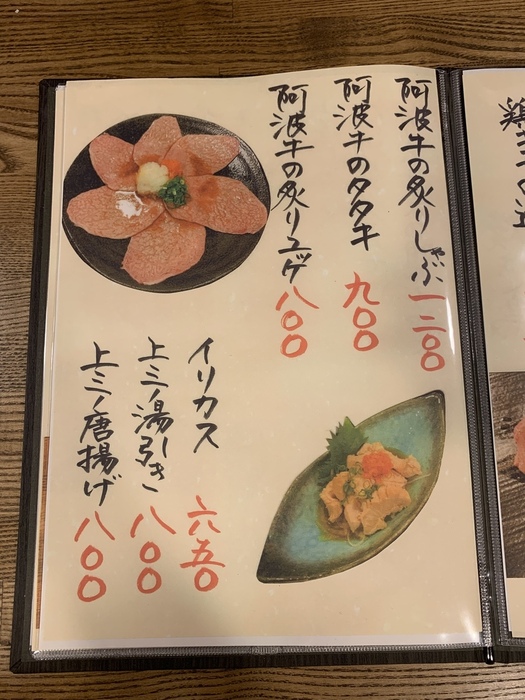 阿波牛の炙りしゃぶ 一二〇〇
阿波牛のタタキ 九〇〇
阿波牛の炙りユッケ 八〇〇
イリカス 六五〇
上ミノ湯引き 八〇〇
上ミノ唐揚げ 八〇〇